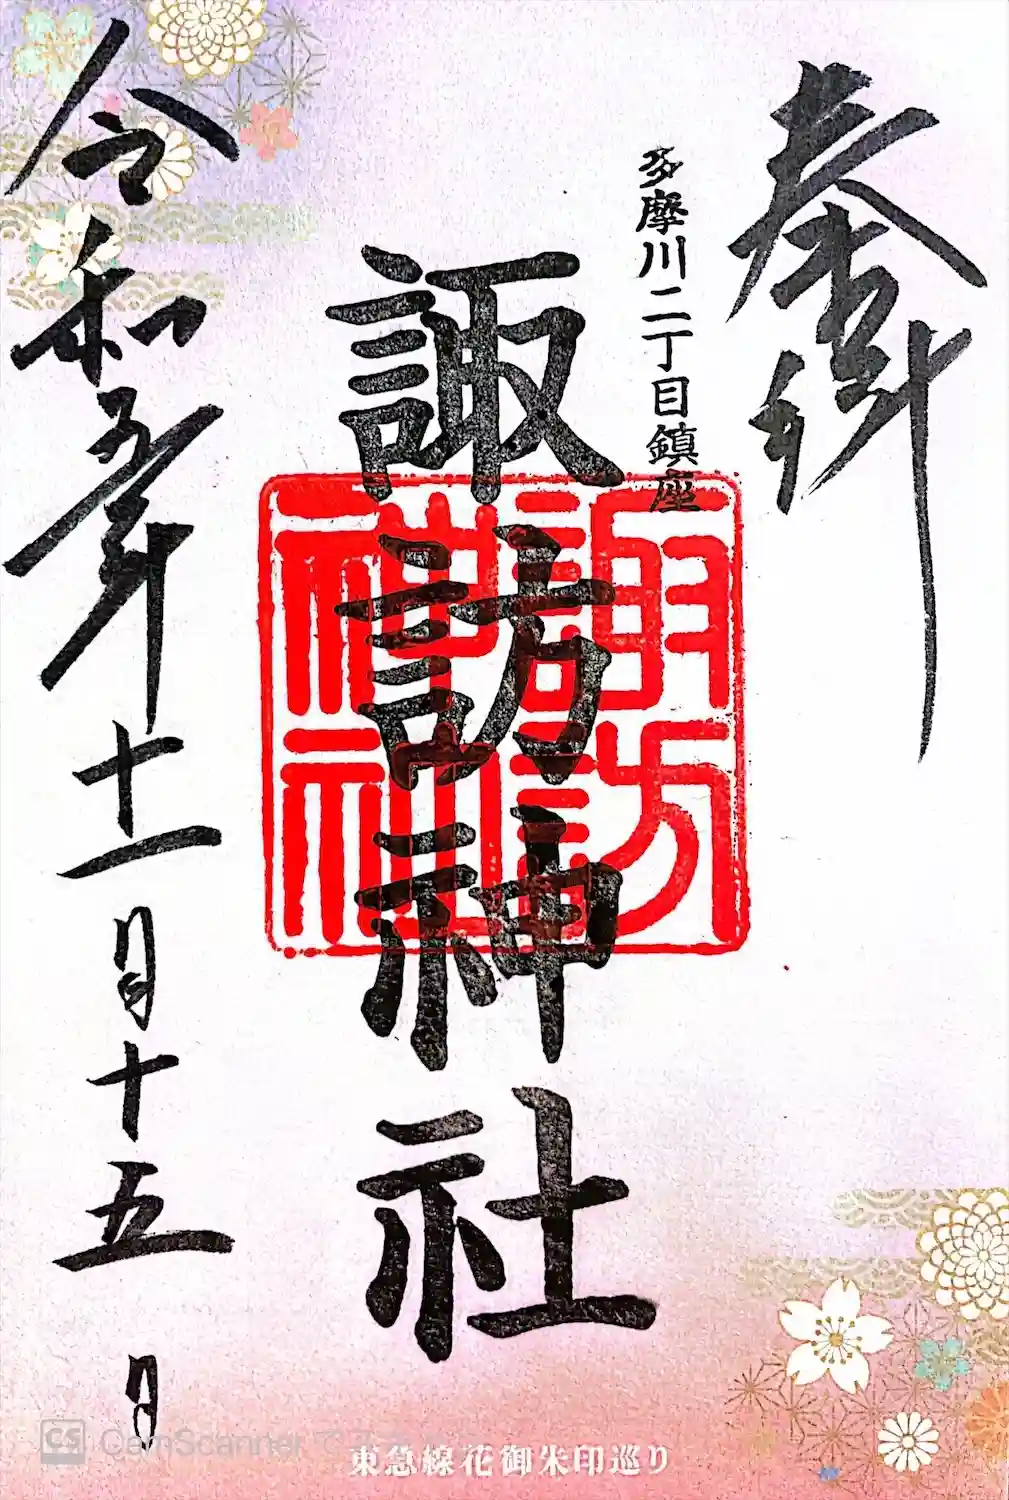 奉拝
多摩川二丁目鎮座
諏訪神社
諏訪
神社
令和五年十一月十五日
東急線花御朱印巡り
CS CamScanner で